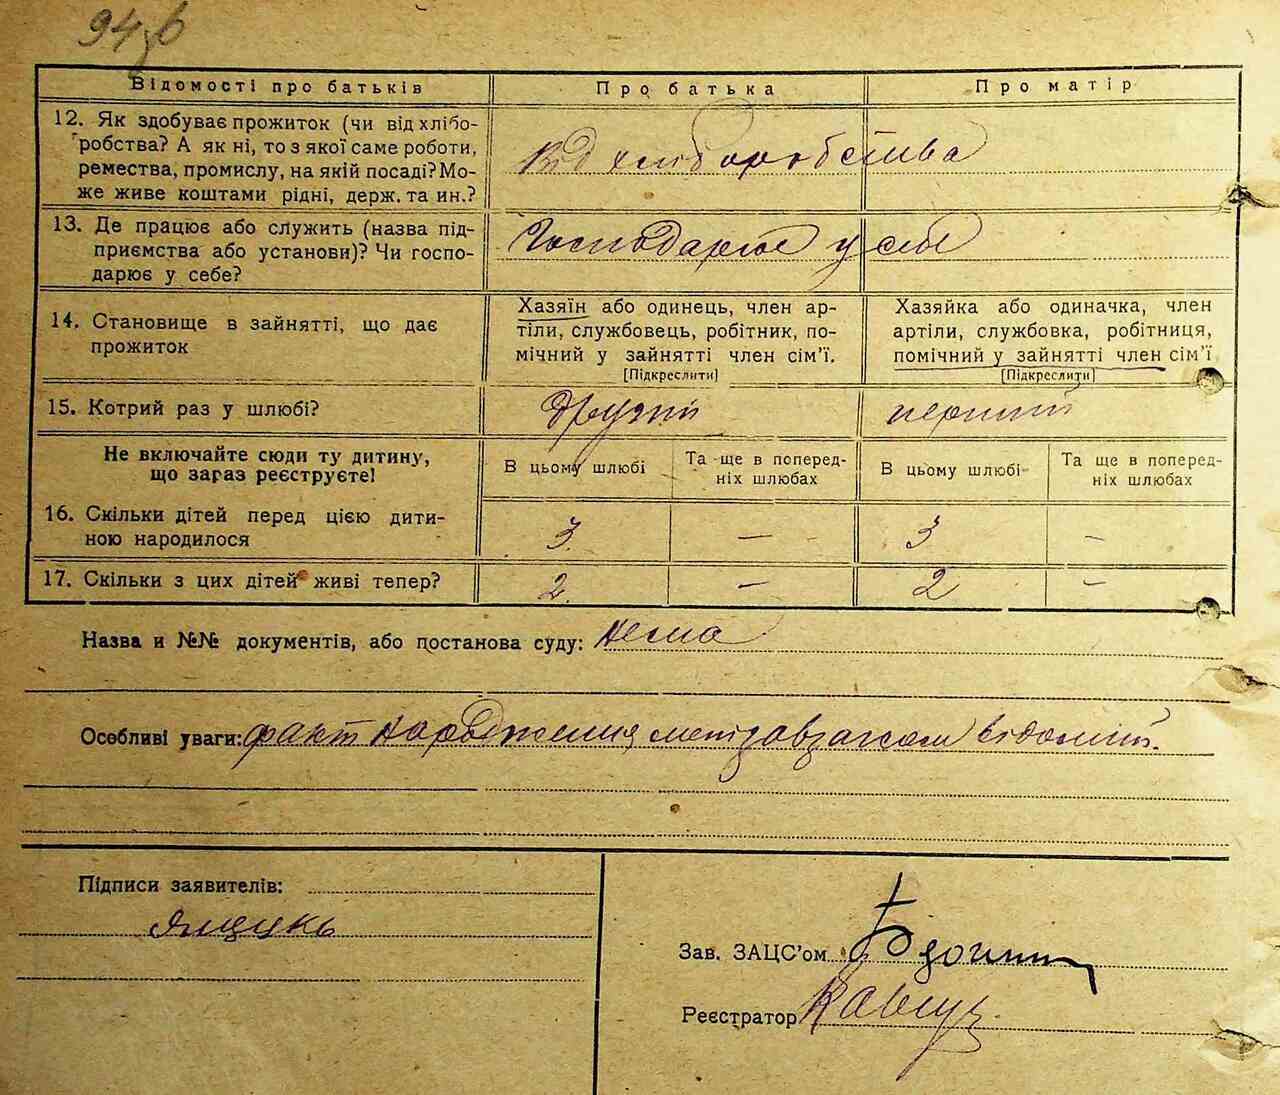 94зв
Відомості про батьків
Про батька
Про матір
12. Як здобуває прожиток (чи від хлібо-
робства? А як ні, то з якої саме роботи,
ремества, промислу, на якій посаді? Мо-
же живе коштами рідні, держ. та ин.?
від хліборобства
13. Де працює або служить (назва під-
приємства або установи)? Чи госпо-
дарює у себе?
Господарює у себе
14. Становище в зайнятті, що дає
прожиток
Хазяїн або одинець, член ар-
тіли, службовець, робітник, по-
мічний у зайнятті член сім'ї.
[Підкреслити]
Хазяйка або одиначка, член
артіли, службовка, робітниця,
помічний у зайнятті член сім'ї
[Підкреслити]
15. Котрий раз у шлюбі?
другий
перший
Не включайте сюди ту дитину,
що зараз реєструєте!
В цьому шлюбі
Та ще в поперед-
ніх шлюбах
В цьому шлюбі
Та ще в поперед-
ніх шлюбах
16. Скільки дітей перед цією дити-
ною народилося
3
—
3
—
17. Скільки з цих дітей живі тепер?
2
—
2
—
Назва и №№ документів, або постанова суду: нема
Особливі уваги: факт народження відомий.
Підписи заявителів:
Зав. ЗАЦС'ом
Реєстратор